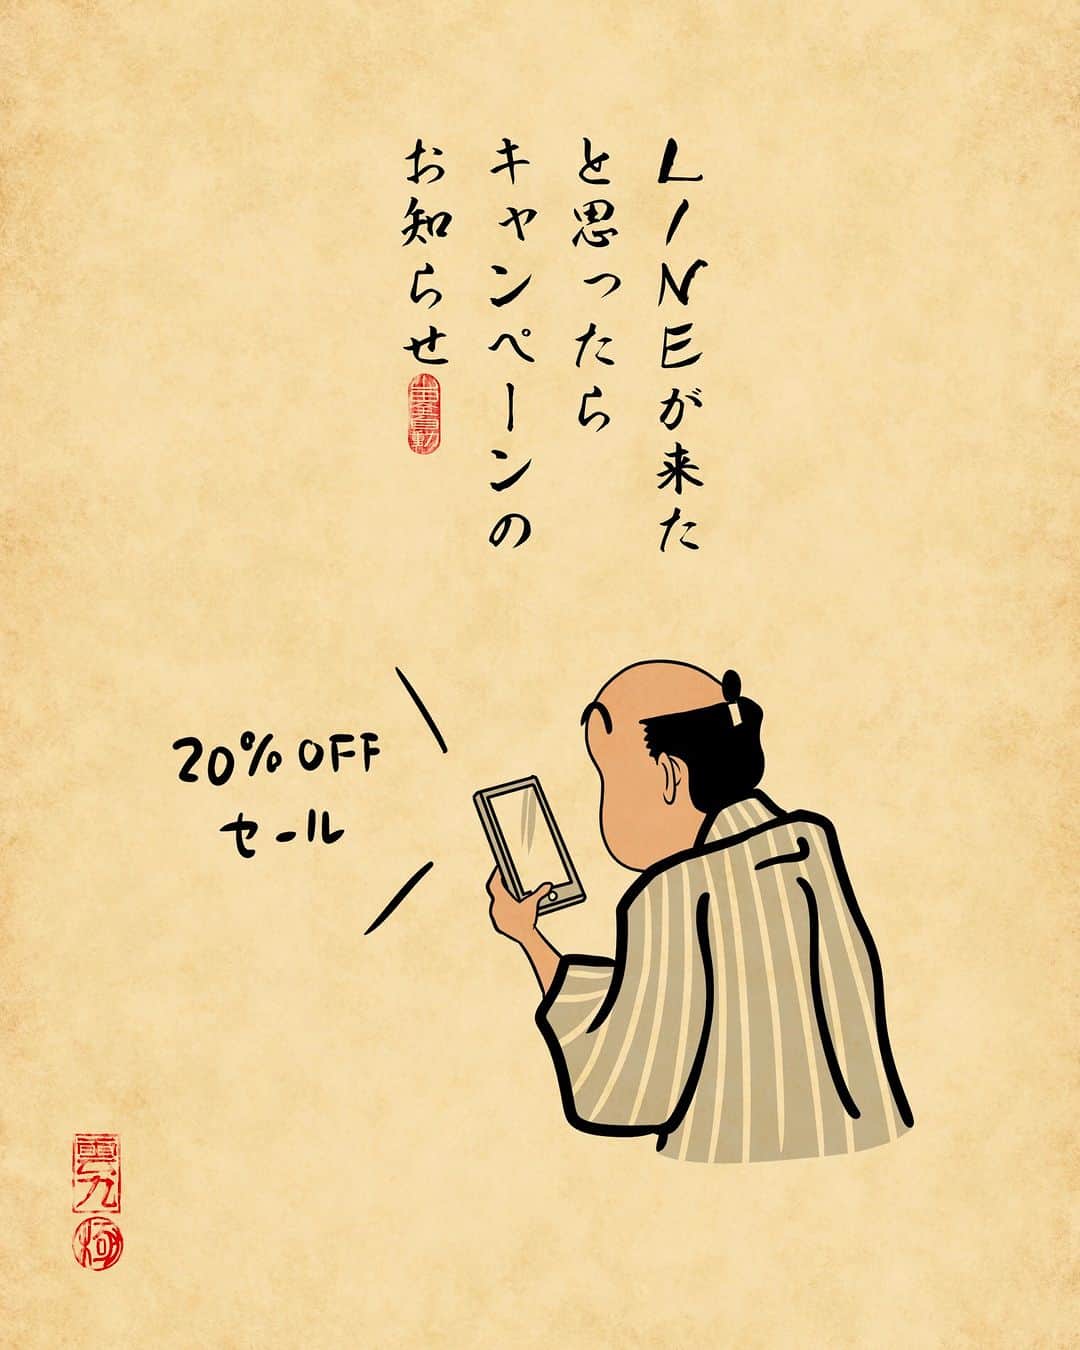 LINEが来た
と思ったら
キャンペーンの
お知らせ
20%OFF
セール